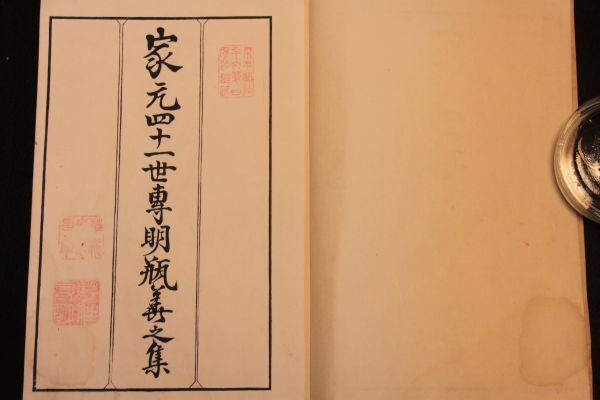 家元四十一世専明瓶華之集